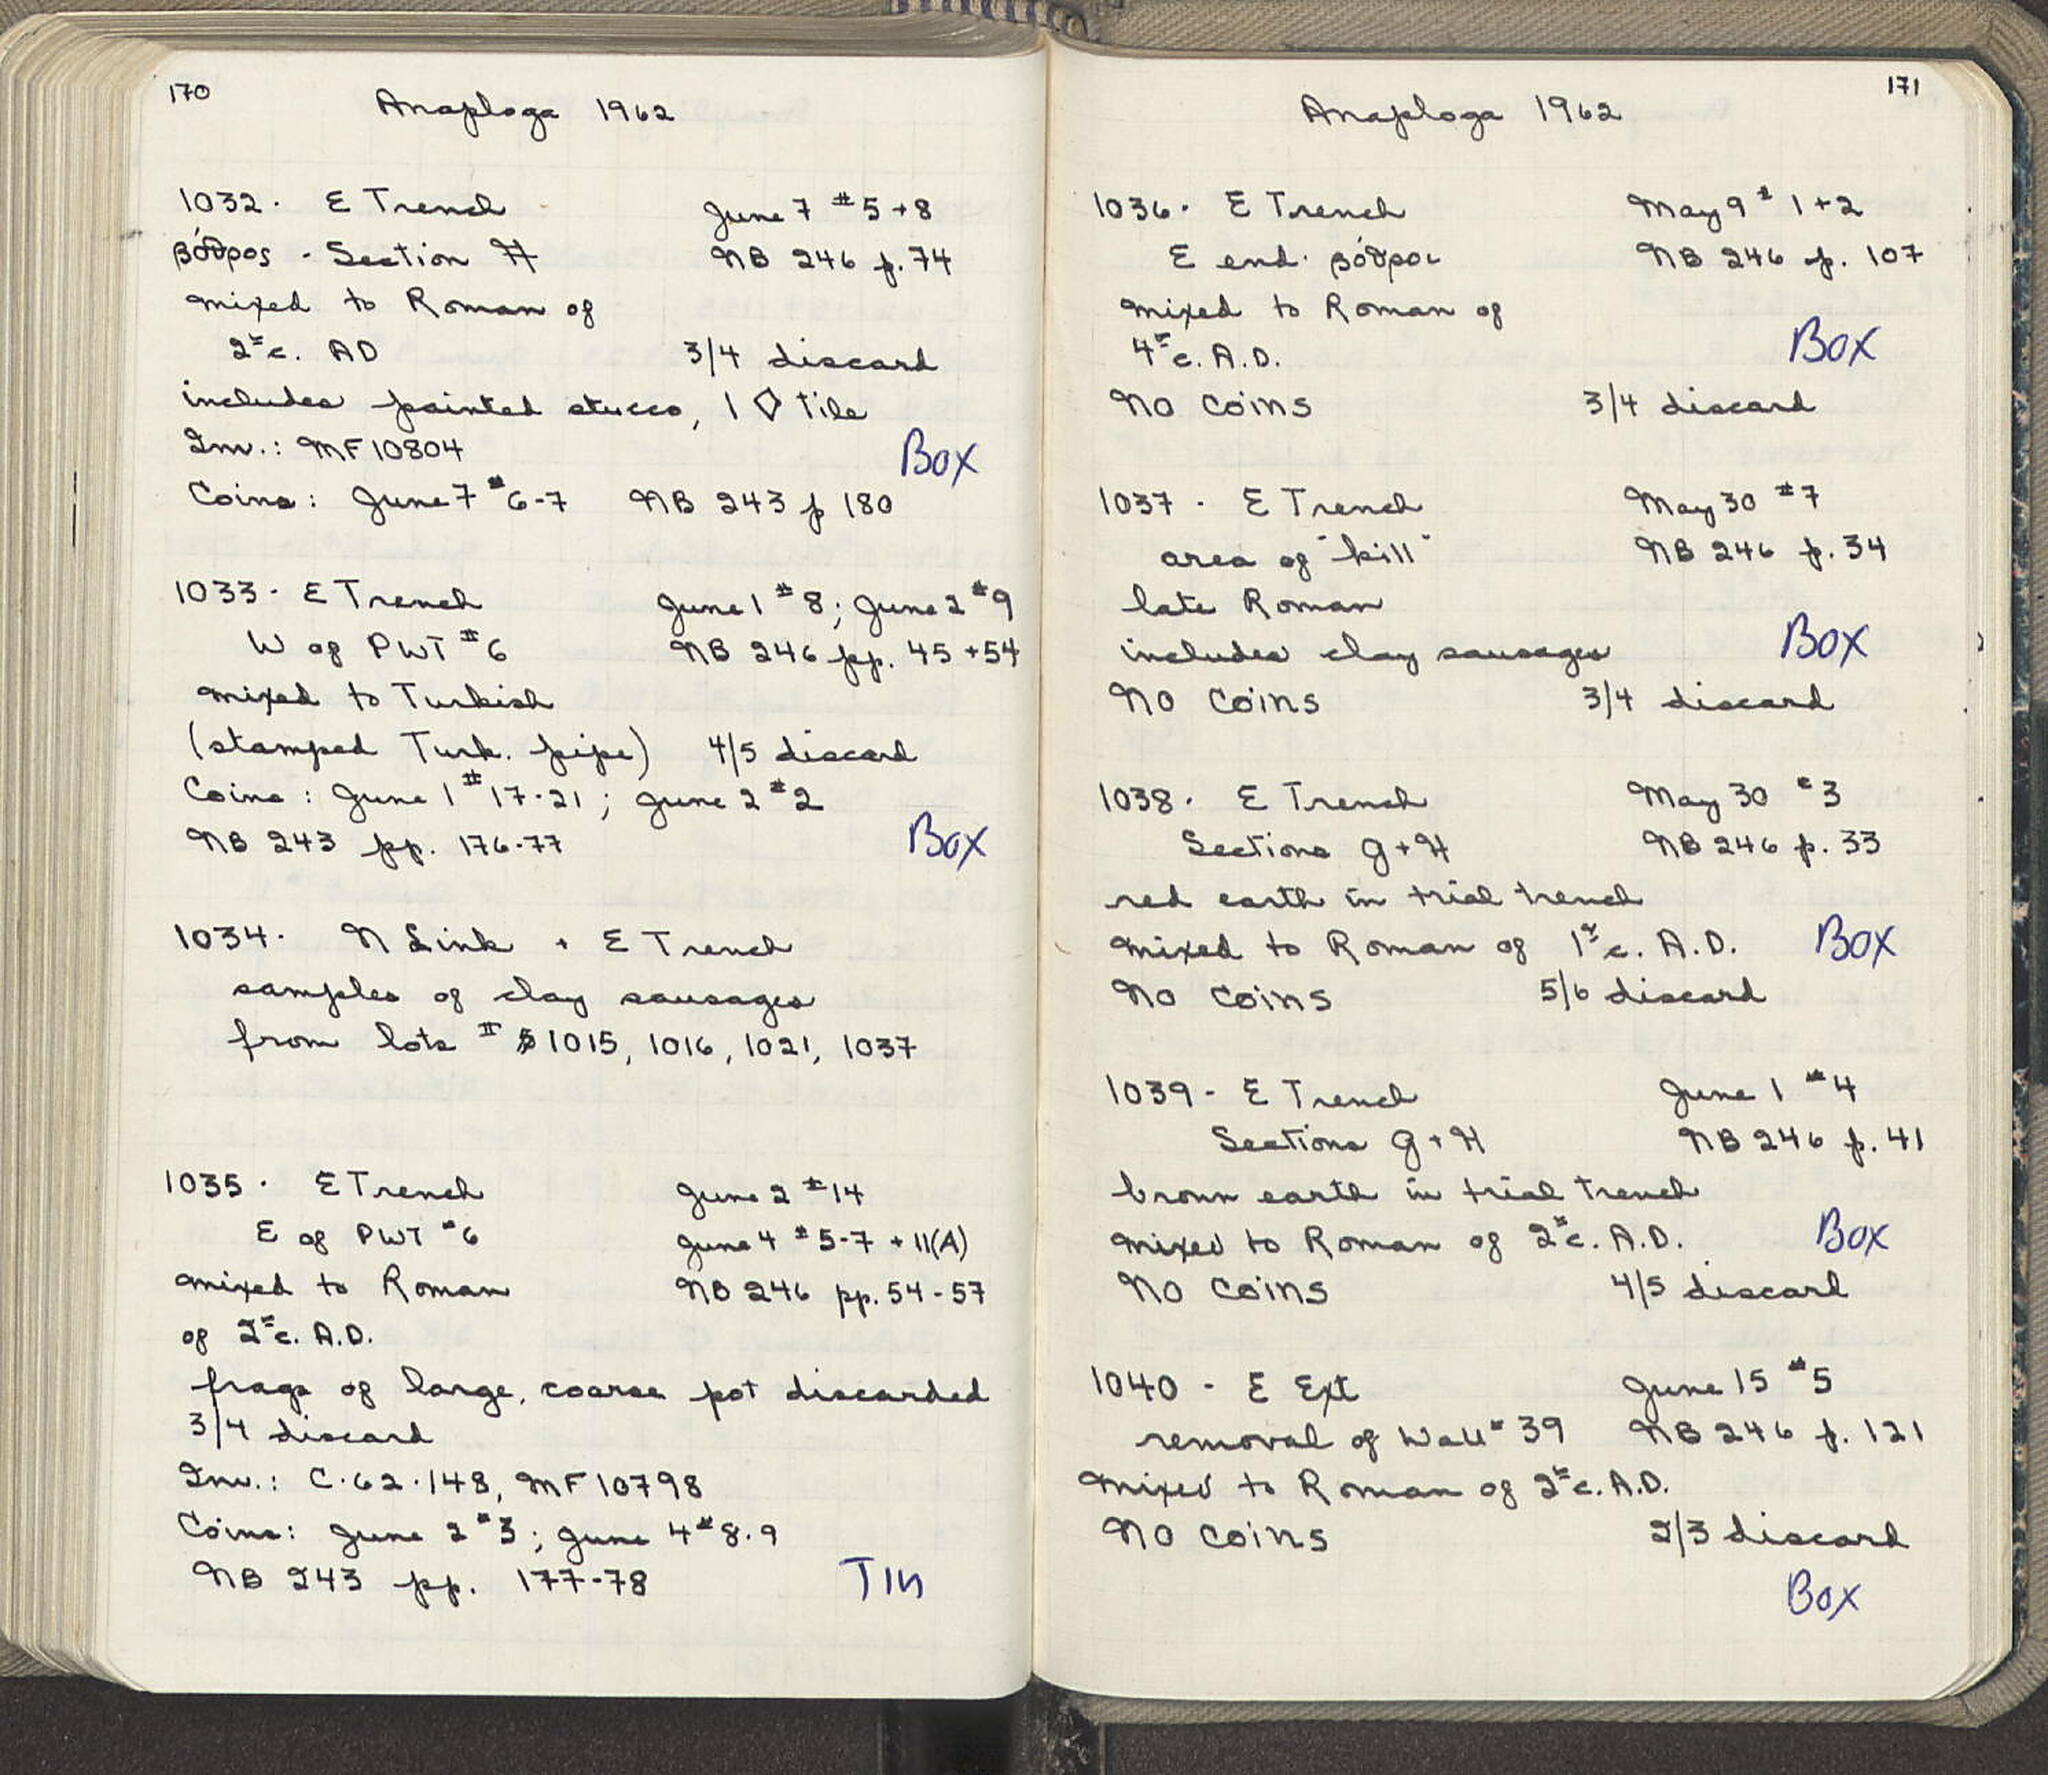 170
Anaploga 1962
1032. E Trench June 7 #5+8
βόθρος - Section H NB 246 p. 74
mixed to Roman of
2nd c. AD 3/4 discard
includes painted stucco, 1 ◊ tile
Inv.: MF 10804 Box
Coins: June 7 #6-7 NB 243 p 180
1033. E Trench June 1 #8; June 2 #9
W of PWT #6 NB 246 pp. 45+54
mixed to Turkish
(stamped Turk. pipe) 4/5 discard
Coins: June 1 #17-21; June 2 #2
NB 243 pp. 176-77 Box
1034. N Link + E Trench
samples of clay sausages
from lots # 1015, 1016, 1021, 1037
1035. E Trench June 2 #14
E of PWT #6 June 4 #5-7 + 11(A)
mixed to Roman NB 246 pp. 54-57
of 2nd c. A.D.
frags of large, coarse pot discarded
3/4 discard
Inv.: C.62.148, MF 10798
Coins: June 2 #3; June 4 #8.9
NB 243 pp. 177-78 Tin
171
Anaploga 1962
1036. E Trench May 9 #1+2
E end. βόθροι NB 246 p. 107
mixed to Roman of
4th c. A.D. Box
No Coins 3/4 discard
1037 - E Trench May 30 #7
area of "kill" NB 246 p. 34
late Roman
includes clay sausages Box
No Coins 3/4 discard
1038. E Trench May 30 #3
Sections G+H NB 246 p. 33
red earth in trial trench
mixed to Roman of 1st c. A.D. Box
No Coins 5/6 discard
1039 - E Trench June 1 #4
Sections G+H NB 246 p. 41
brown earth in trial trench
mixed to Roman of 2nd c. A.D. Box
No Coins 4/5 discard
1040 - E Ext June 15 #5
removal of Wall #39 NB 246 p. 121
mixed to Roman of 2nd c. A.D.
No Coins 2/3 discard
Box